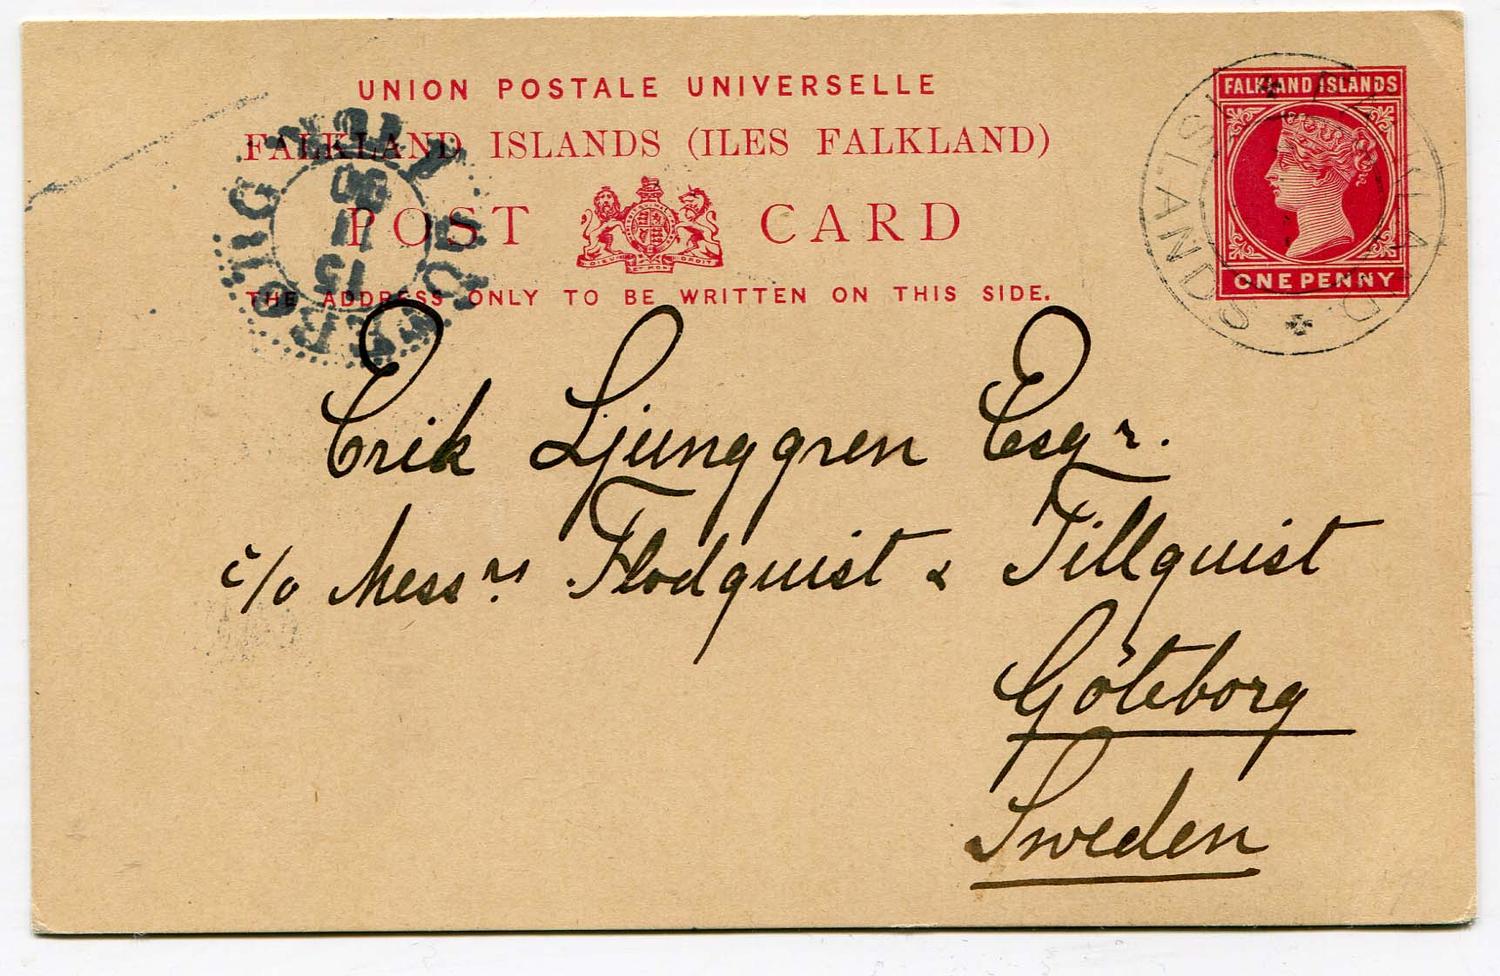 UNION POSTALE UNIVERSELLE
FALKLAND ISLANDS (ILES FALKLAND)
POST CARD
THE ADDRESS ONLY TO BE WRITTEN ON THIS SIDE.
FALKLAND ISLANDS
ONE PENNY
ISLANDS
15
11
Erik Ljunggren Esqr.
c/o Messrs. Flodquist & Tillquist
Göteborg
Sweden